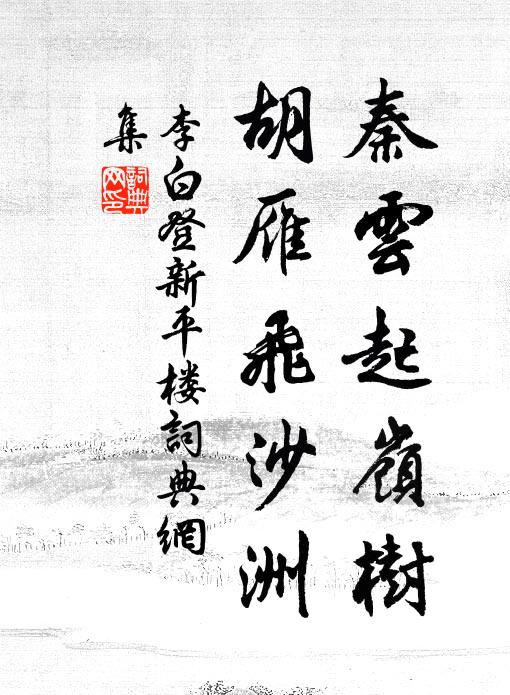 秦雲起嶺樹
胡雁飛沙洲
李白登新平楼詞典網
集
詞典
网印